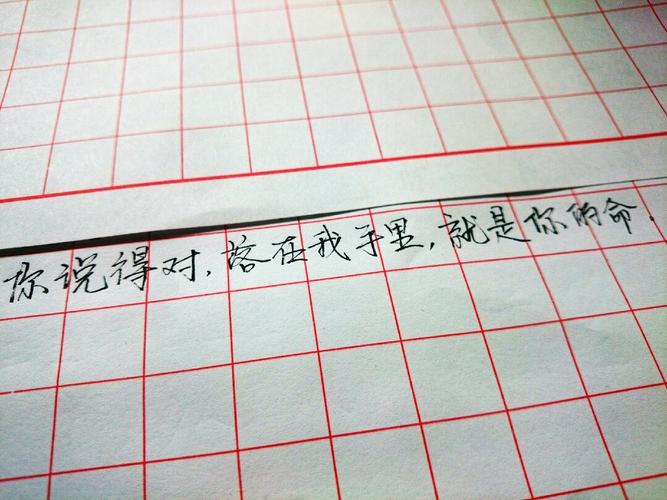 你说得对，落在我手里，就是你的命．